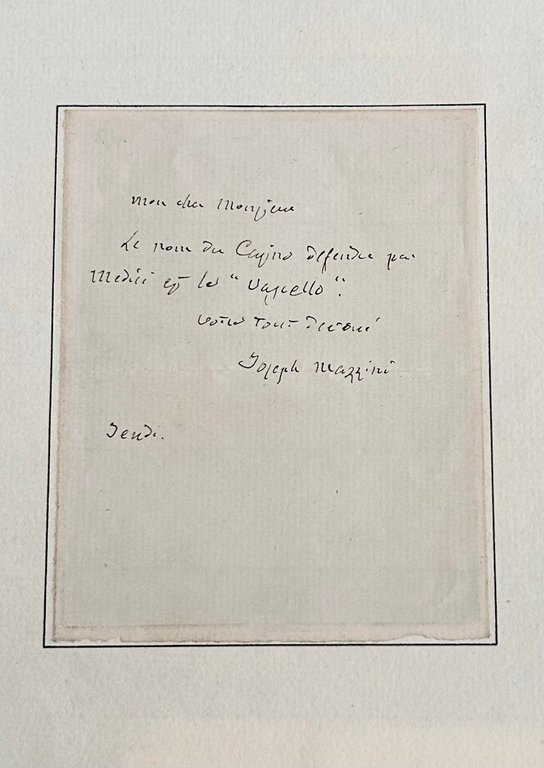 mon cher Monsieur
Le nom du Casino défendu par
Medici est le "Vascello".
votre tout dévoué
Joseph Mazzini.
Jeudi.